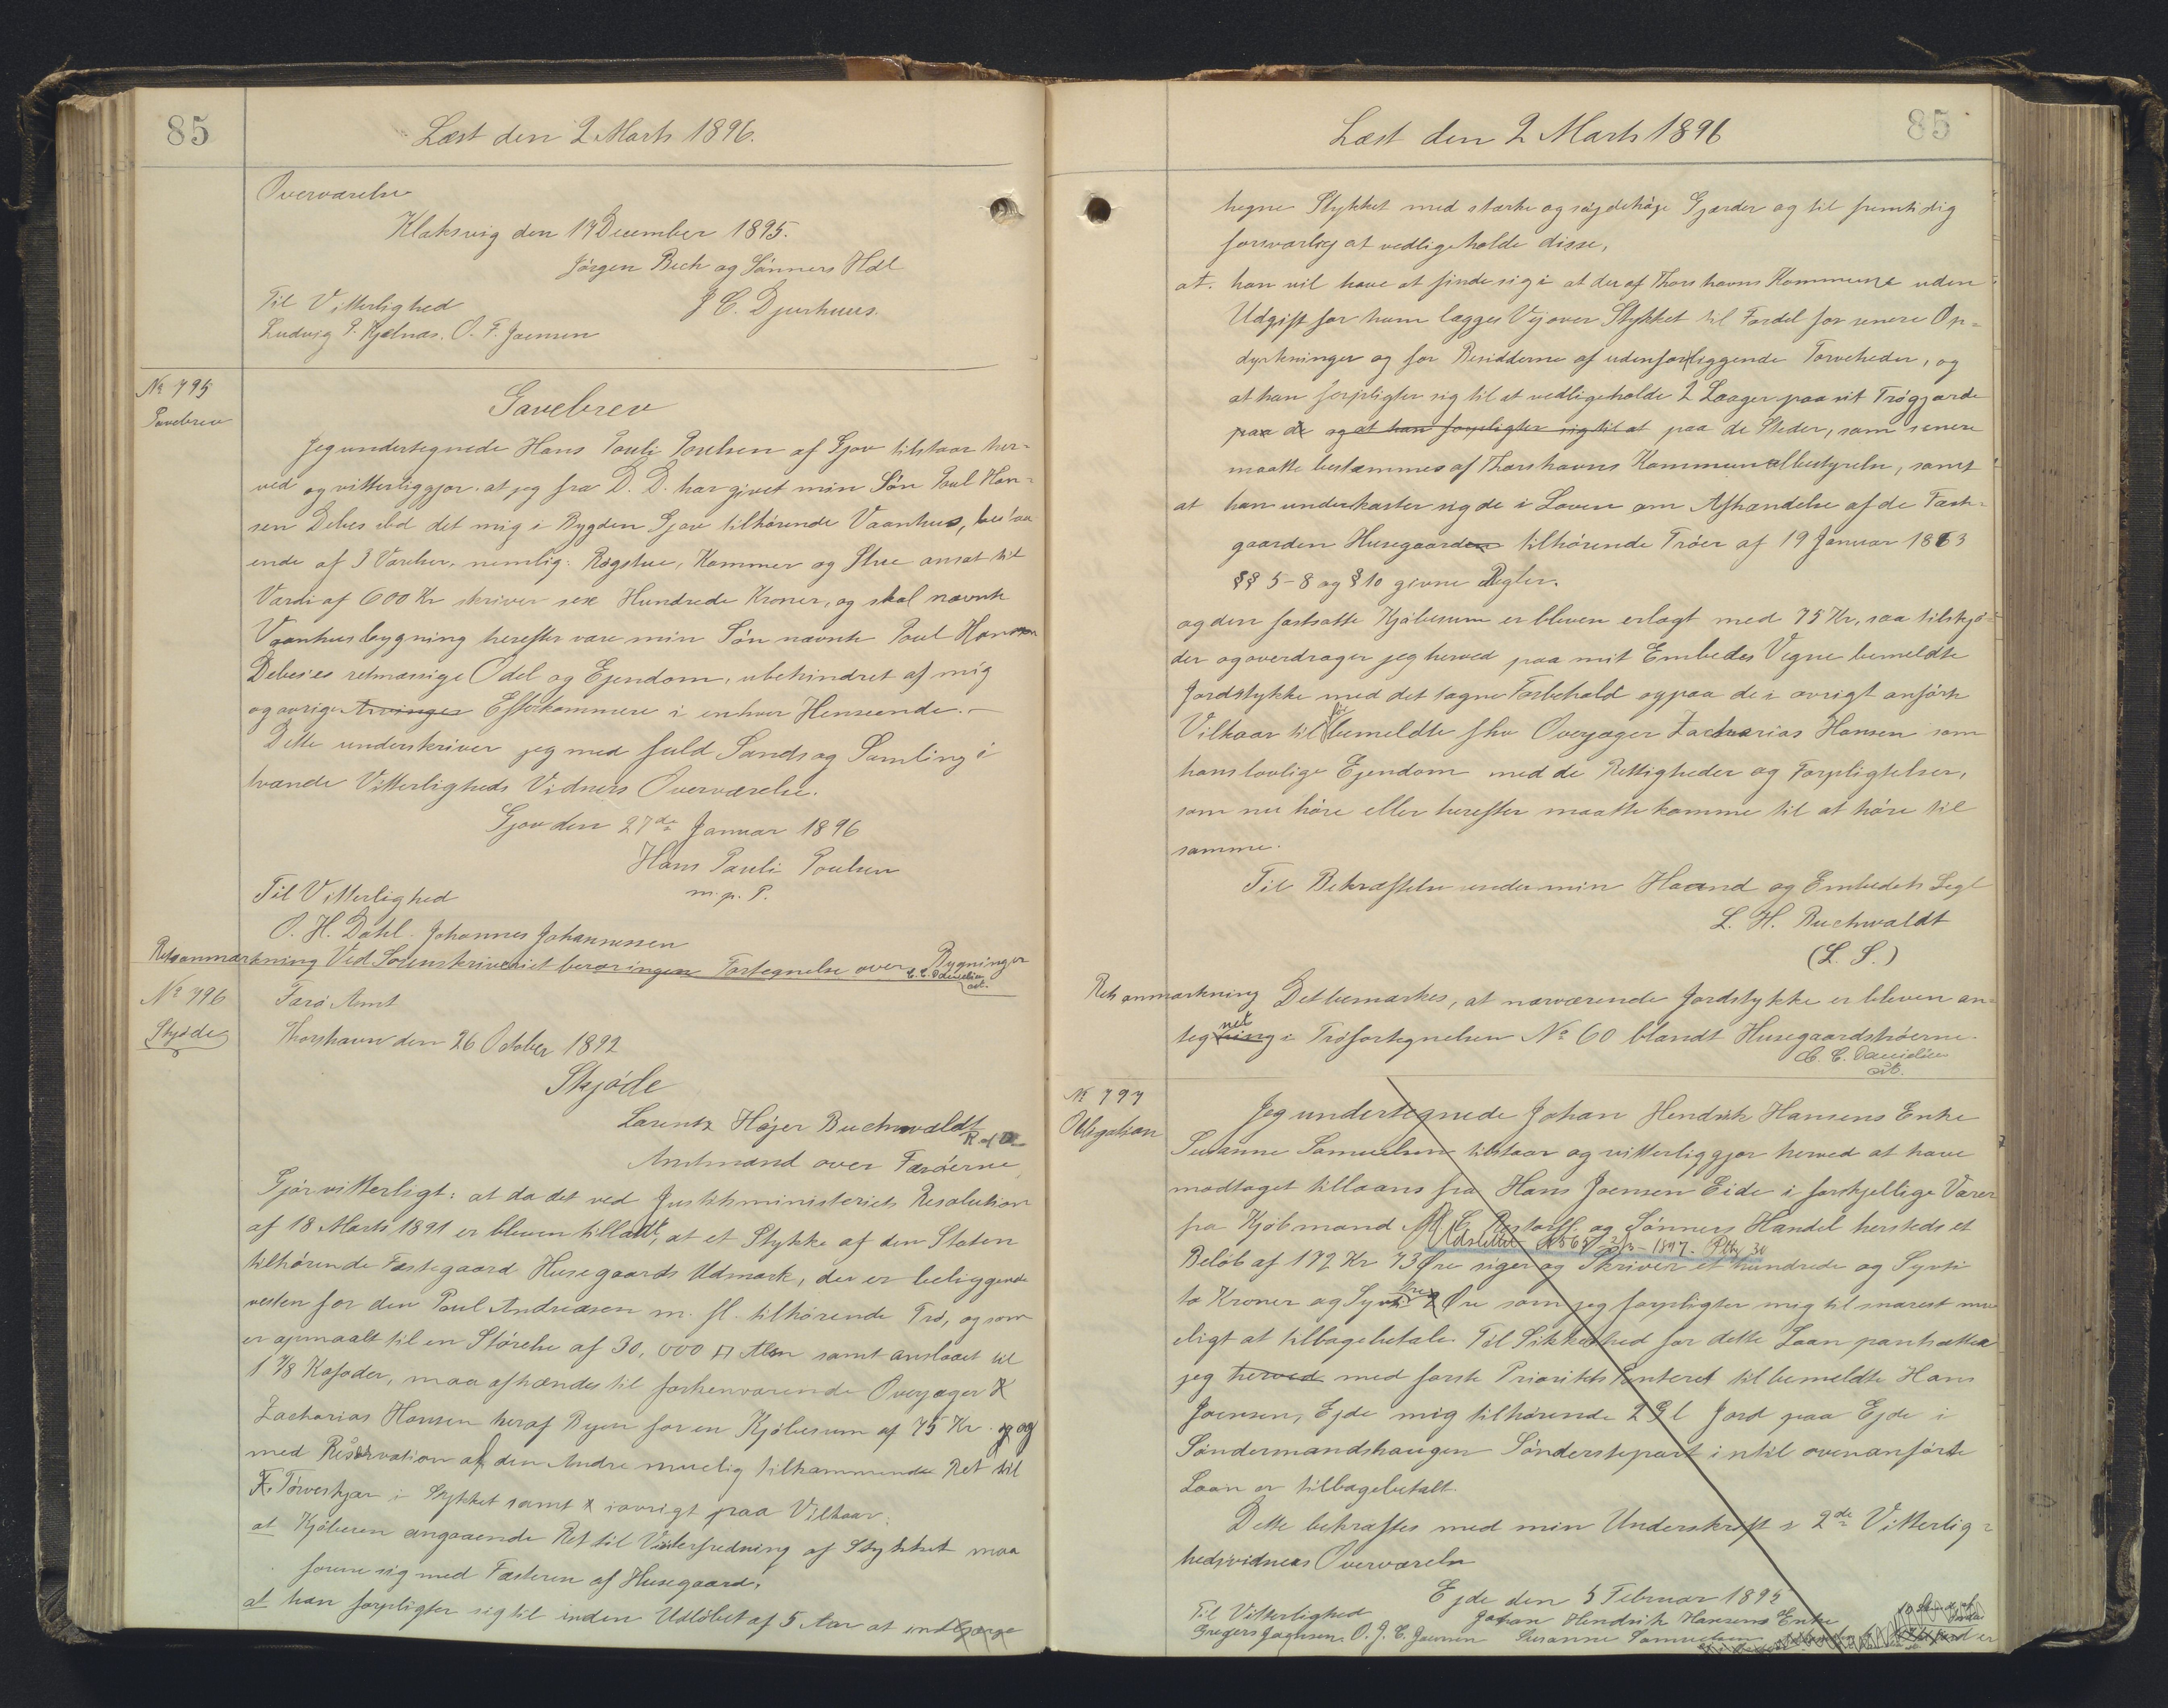 85
Læst den 2 Marts 1896.
Overværelse
Klaksvig den 14 December 1895.
Jörgen Bech og Sönners Hdl
Til Vitterlighed J C. Djurhuus.
Ludvig P. Kjølnæs. O. F. Joensen
No 795
Gavebrev
Gavebrev
Jeg undertegnede Hans Pauli Poulsen af Gjov tilstaar her-
ved og vitterliggjør at jeg fra D. D. har givet min Sön Poul Han-
sen Debes ibd det mig i Bygden Gjov tilhörende Vaanhus, bestaa
ende af 3 Værelser, nemlig: Røgstue, Kammer og Stue ansat til
Værdi af 600 Kr skriver sex Hundrede Kroner, og skal nævnte
Vaanhusbygning herefter være min Sön nævnte Poul Hansen
Debes'es retmæssige Odel og Ejendom, ubehindret af mig
og øvrige Arvinger Efterkommere i enhver Henseende.-
Dette underskriver jeg med fuld Sands og Samling i
tvende Vitterligheds Vidners Overværelse.
Gjov den 27de Januar 1896
Hans Pauli Poulsen
m. p. P.
Til Vitterlighed
O. H. Dahl. Johannes Johannessen
Retsanmærkning Ved Sorenskriveriet beror ingen Fortegnelse over Bygninger
C. C. Danielsen
cst.
No 796
Skjøde
Færö Amt
Thorshavn den 26 October 1892
Skjöde
Lorentz Højer Buchwaldt
R af D
Amtmand over Færöerne
Gjör vitterligt: at da det ved Justitsministeriets Resolution
af 18 Marts 1891 er bleven tilladt, at et Stykke af den Staten
tilhörende Fæstegaard Husegaards Udmark, der er beliggende
vesten for den Poul Andreasen m. fl. tilhörende Trö, og som
er opmaalt til en Störelse af 30,000 □ Alen samt anslaaet til
1 7/8 Kofoder, maa afhændes til forhenværende Overjæger
Zacharias Hansen her af Byen for en Kjöbesum af 75 Kr. og
med Reservation af den Andre muelig tilkommende Ret til
Törveskjær i Stykket samt iøvrigt paa Vilkaar:
at Kjöberen angaaende Ret til Vinterfredning af Stykket maa
forene sig med Fæsteren af Husegaard,
at han forpligter sig til inden Udlöbet af 5 Aar at
85
Læst den 2 Marts 1896
hegne Stykket med stærke og höje Gjærder og til fremtidig
forsvarlig at vedligeholde disse,
at. han vil have at finde sig i at der af Thorshavns Kommune uden
Udgift for ham lægges Vej over Stykket til Fordel for senere Op-
dyrkninger og for Besidderne af udenforliggende Törveheder, og
at han forpligter sig til at vedligeholde 2 Laager paa sit Trögjærde
paa de og at han forpligter sig til at paa de Steder, som senere
maatte bestemmes af Thorshavns Kommunalbestyrelse, samt
at han underkaster sig de i Loven om Afhændelse af de Fæste-
gaarden Husegaarden tilhörende Tröer af 19 Januar 1863
§§ 5-8 og § 10 givne Regler.
og den fastsatte Kjöbesum er bleven erlagt med 75 Kr, saa tilskjö-
der og overdrager jeg herved paa mit Embedes Vegne bemeldte
Jordstykke med det tagne Forbehold og paa de i øvrigt anförte
Vilkaar til för bemeldte fhv Overjæger Zacharias Hansen som
hans lovlige Ejendom med de Rettigheder og Forpligtelser,
som nu höre eller herefter maatte komme til at höre til
samme.
Til Bekræftelse under min Haand og Embedets Segl
L. H. Buchwaldt
(L. S.)
Retsanmærkning Det bemærkes, at nærværende Jordstykke er bleven an-
net
tegning i Tröfortegnelsen No 60 blandt Husegaardströerne.
C. C. Danielsen
cst.
No 797
Obligation
Jeg undertegnede Johan Hendrik Hansens Enke
Susanne Samuelsen tilstaar og vitterliggjør herved at have
modtaget tillaans fra Hans Joensen Eide i forskjellige Varer
fra Kjöbmand M. C. Restorff og Sönners Handel hersteds et
Udslettet No 565 2/3 - 1897.
Belöb af 172 Kr 73 Øre siger og Skriver et hundrede og Sytti
to Kroner og Sytti tre Øre som jeg forpligter mig til snarest mu
eligt at tilbagebetale. Til Sikkerhed for dette Laan pantsætter
jeg herved med første Prioritets Panteret til bemeldte Hans
Joensen, Ejde mig tilhørende 2 Gl Jord paa Ejde i
Söndermandshaugen Sönderstepart indtil ovenanförte
Laan er tilbagebetalt.
Dette bekræftes med min Underskrift i 2de Vitterlig-
hedsvidners Overværelse
Ejde den 5 Februar 1895
Til Vitterlighed Johan Hendrik Hansens Enke
Gregers Joensen. O. J. C. Joensen Susanne Samuelsen